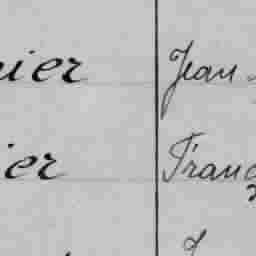 nier Jean
ier Franç